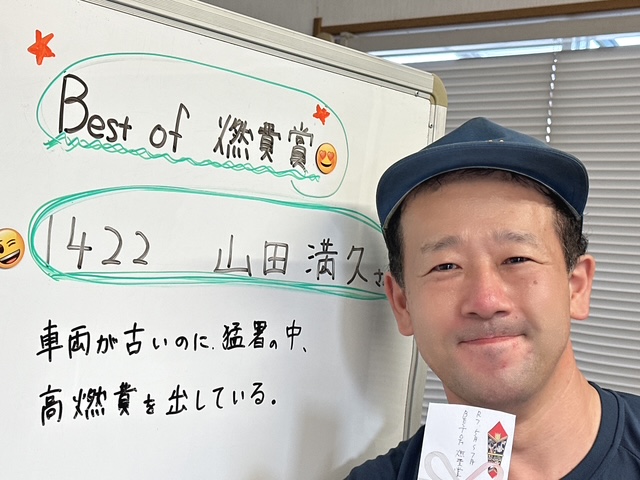 Best of 燃費賞
1422 山田満久さ
車両が古いのに、猛暑の中、
高燃費を出している。